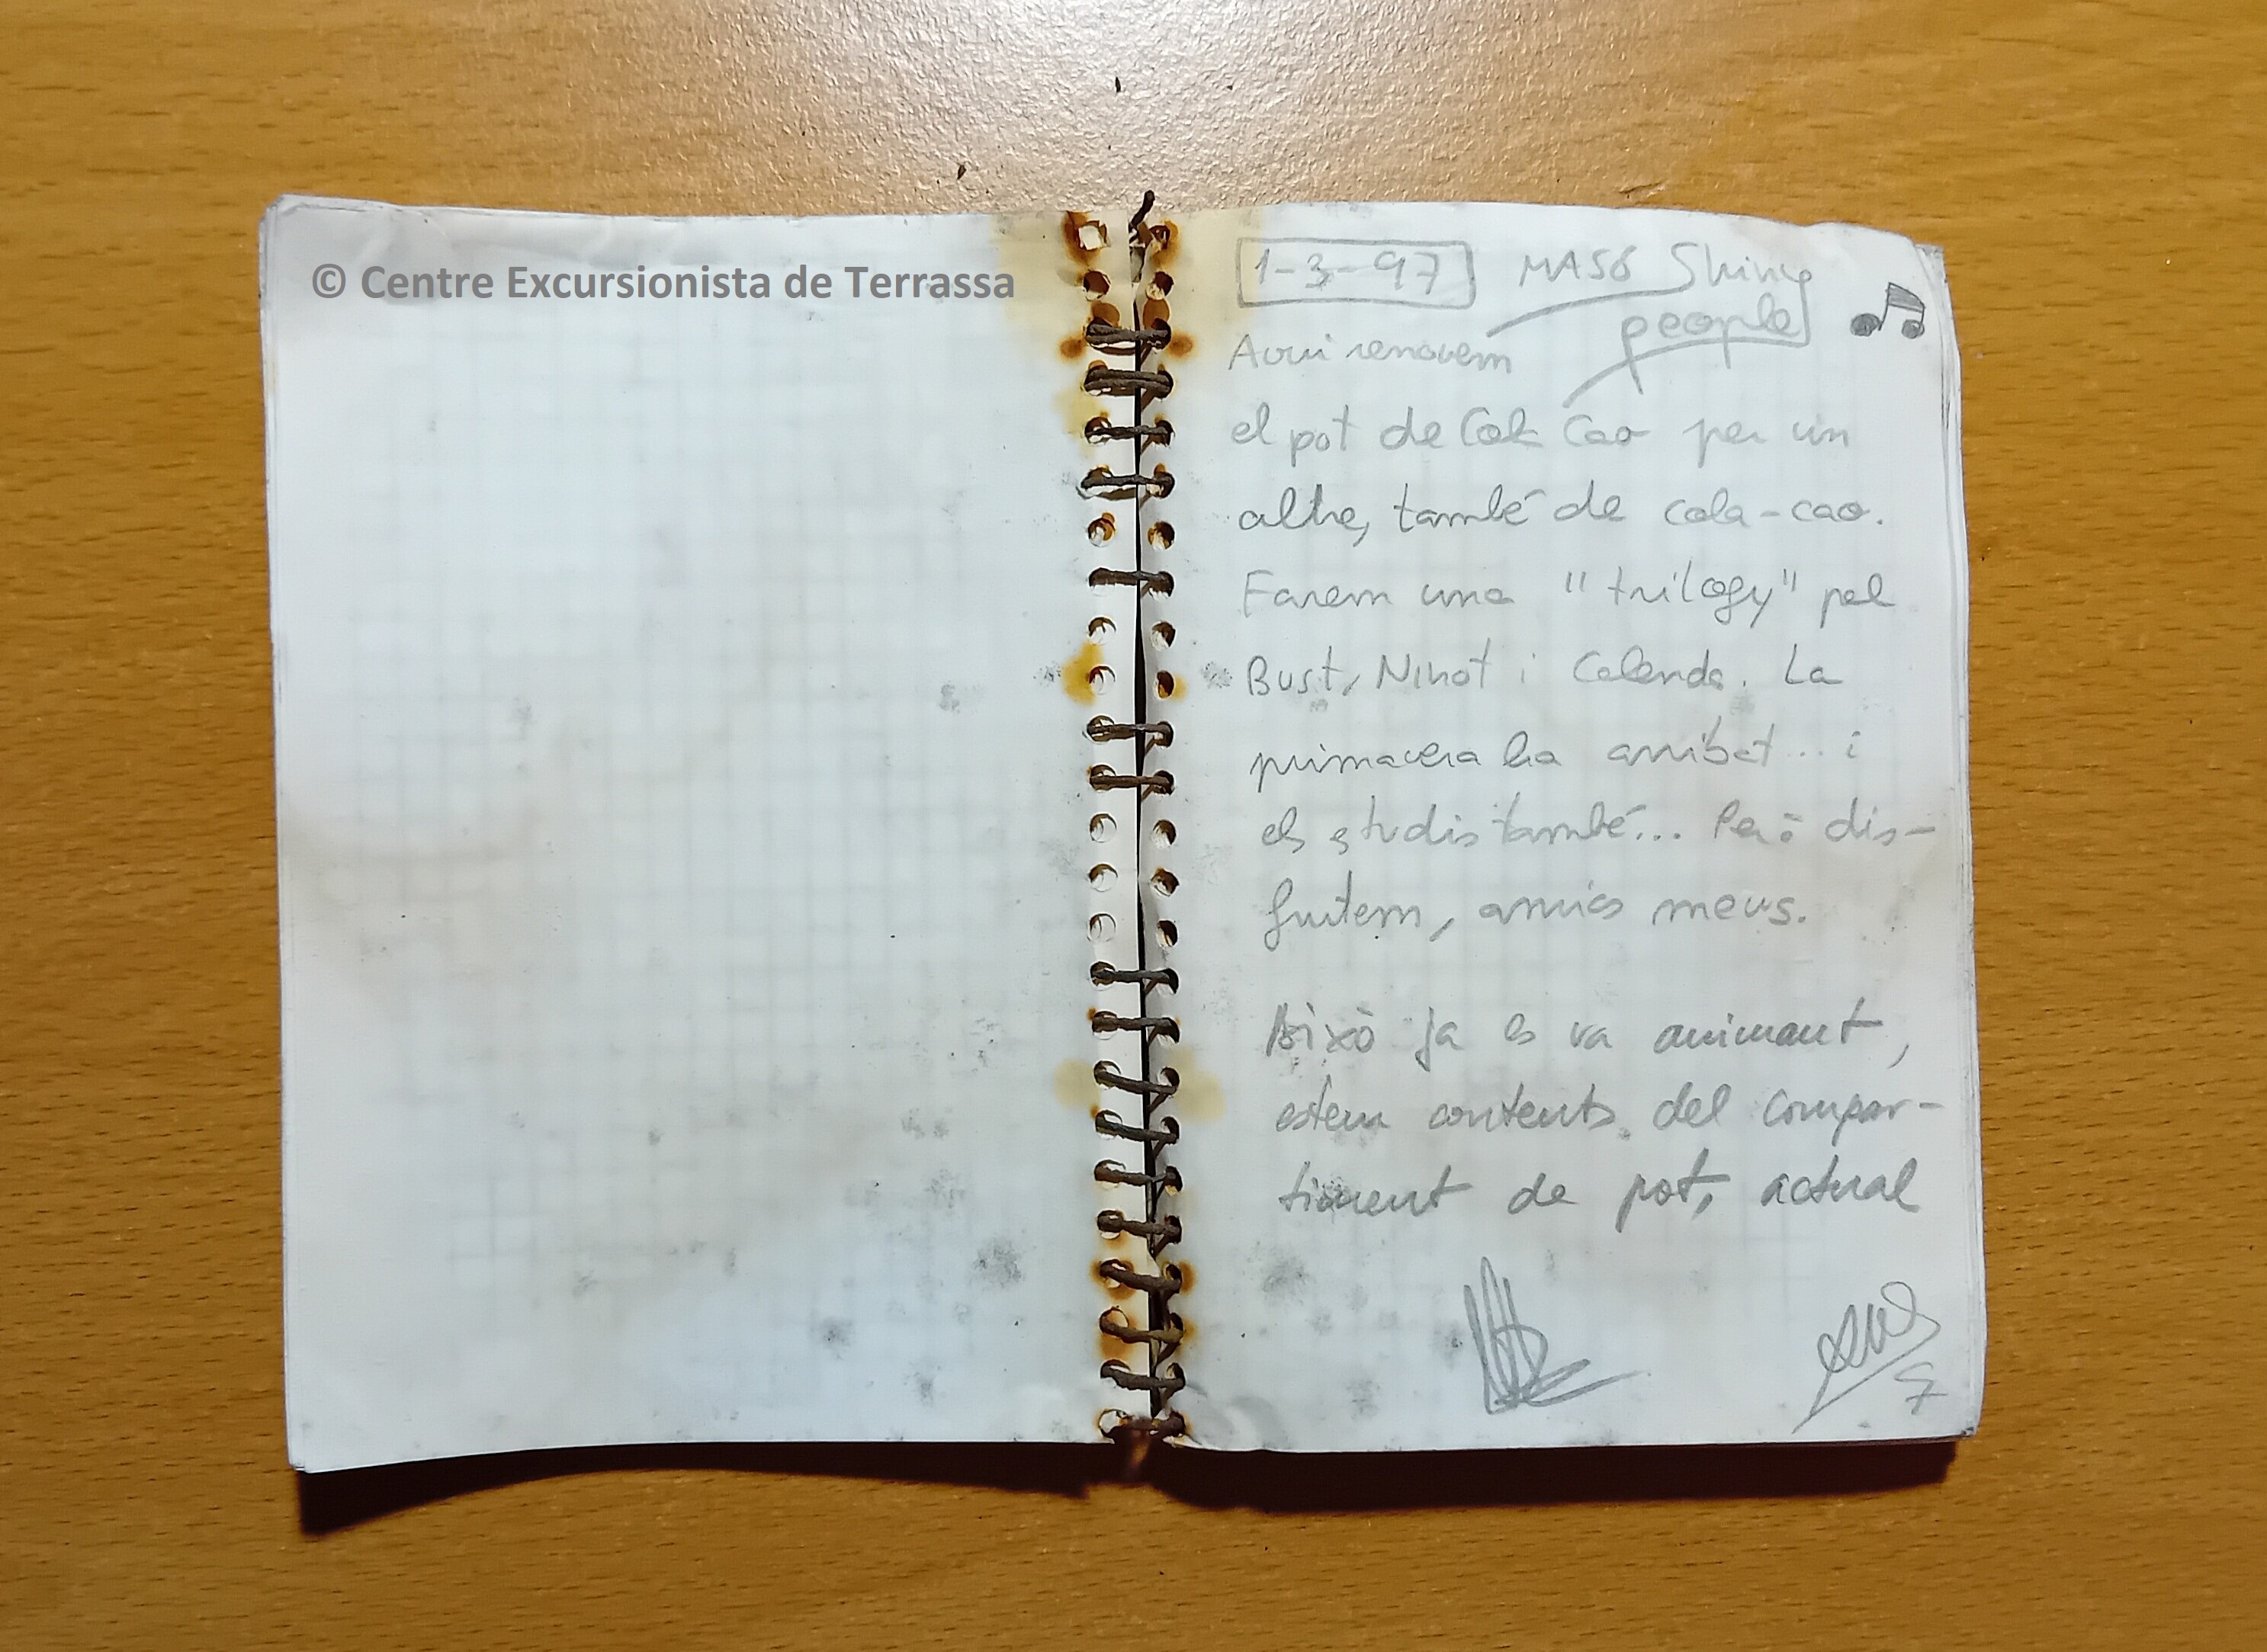 © Centre Excursionista de Terrassa
1-3-97 MASÓ Shiny
people
Avui renovem
el pot de Cola Cao per un
altre, també de cola-cao.
Farem una "trilogy" pel
Bust, Ninot i Calenda. La
primavera ha arribat... i
els estudis també... Però dis-
fruitem, amics meus.
Això ja es va animant,
estem contents del compar-
timent de pot, actual